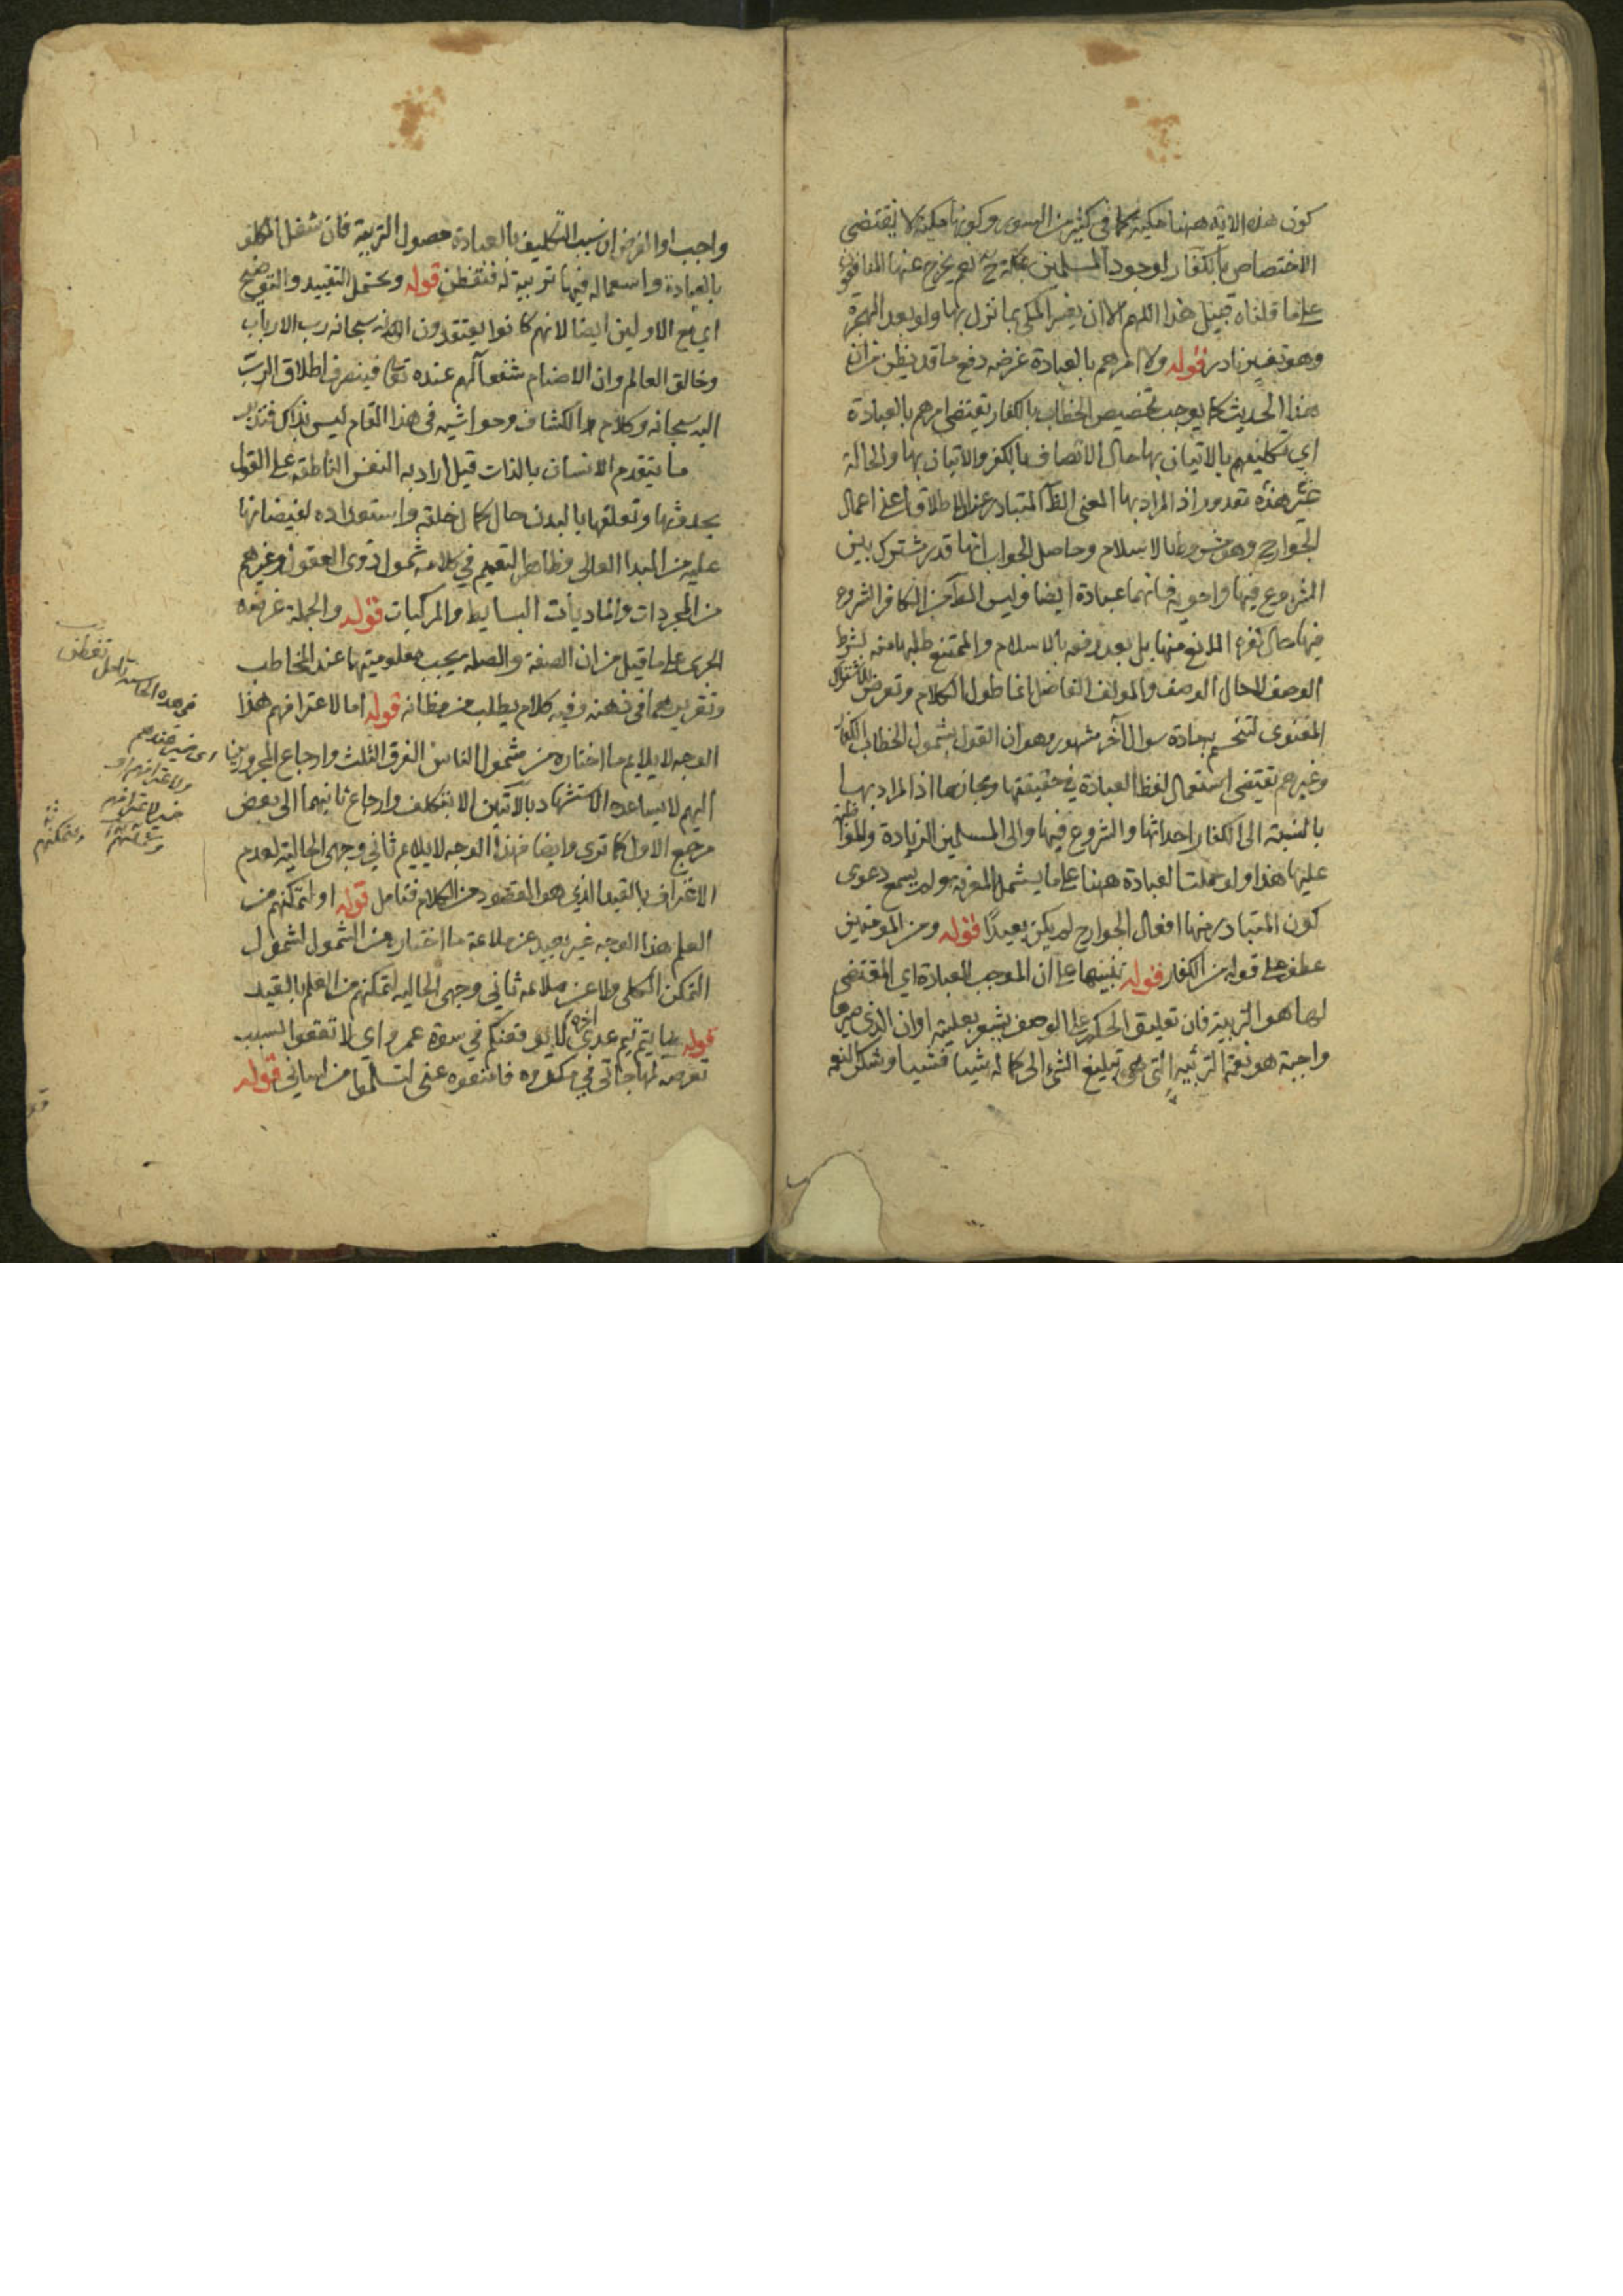 كون هذه الاية ههنا مكية كما في كثير من السور وكونها مكية لا يقتضي
الاختصاص بالكفار لوجود المسلمين بمكة ح نعم يخرج عنها المنافقون
على ما قلناه قبيل هذا اللهم الا ان يفسر المكي بما نزل بها ولو بعد الهجرة
وهو تفسير نادر قوله ولا امرهم بالعبادة غرضه دفع ما قد يظن من ان
هذا الحديث كما يوجب تخصيص الخطاب بالكفار يقتضي امرهم بالعبادة
اي تكليفهم بالاتيان بها حال الاتصاف بالكفر والاتيان بها والحالة
هذه اذ المراد بها المعنى المتبادر عند الاطلاق اعني اعمال
الجوارح وهو مشروط بالاسلام وحاصل الجواب انها قدر مشترك بين
الشروع فيها و فانهما عبادة ايضا وليس المط من الكافر الشروع
فيها حال المانع منها بل بعد رفعه بالاسلام والممتنع طلبها منه بشرط
الوصف لا حال الوصف والمولف الفاضل انما طول الكلام وتعرض للاشتراك
المعنوي لتنحسم به مادة سوال آخر مشهور وهو ان القول بشمول الخطاب الكفار
وغيرهم يقتضي استعمال لفظ العبادة في حقيقتها ومجازها اذ المراد بها
بالنسبة الى الكفار احداثها والشروع فيها والى المسلمين الزيادة والمواظبة
عليها هذا ولو حملت العبادة ههنا على ما يشمل المعرفة ولم يسمع دعوى
كون المتبادر منها افعال الجوارح لم يكن بعيدًا قوله ومن المومنين
عطف على قوله من الكفار قوله تنبيها على ان الموجب للعبادة اي المقتضي
لها هو التربية فان تعليق الحكم على الوصف يشعر بعليته اوان الذي صيرها
واجبة هو نعمة التربية التي هي تبليغ الشيء الى كماله شيئا فشيئا وشكر النعمة
واجب او الغرض ان سبب التكليف بالعبادة حصول التربية فان شغل المكلف
بالعبادة واستعماله فيها تربية له فتفطن قوله ويحتمل التقييد والتوضيح
اي مع الاولين ايضا لانهم كانوا يعتقدون انه سبحانه رب الارباب
وخالق العالم وان الاصنام شفعآلهم عنده تع فينصرف اطلاق الرب
اليه سبحانه وكلام الكشاف وحواشيه في هذا المقام ليس بذاك فتدبر
ما يتقدم الانسان بالذات قيل اراد به النفس الناطقة على القول
بحدوثها وتعلقها بالبدن حال كمال خلقه واستعداده لفيضانها
عليه من المبدا العالي وظاهر التعميم في كلامه شمول ذوي العقول وغيرهم
من المجردات والماديات البسايط والمركبات قوله والجملة غرضه
الجرى على ما قيل من ان الصفة والصلة يجب معلوميتها عند المخاطب
وتقررهما في ذهنه وفيه كلام يطلب من مظانه قوله اما لاعترافهم هذا
الوجه لا يلايم ما اختاره من شمول الناس الفرق الثلث وارجاع المجرورين
اليهم لا يساعده الاستشهاد بالآتين الا بتكلف وارجاع ثانيهما الى بعض
مرجع الاول كما ترى وايضا فهذا الوجه لا يلايم ثاني وجهي الحالية لعدم
الاعتراف بالقيد الذي هو المقصود من الكلام فتامل قوله او لتمكنهم من
العلم هذا الوجه غير بعيد عن ملاءمة ما اختاره من الشمول لشمول
التمكن الكل ولا عن ملاءمة ثاني وجهي الحالية لتمكنهم من العلم بالقيد
قوله يا تيم تيم عدي اخره لا يوقعنكم في سوءة عمر اي لا تقعوا بسبب
تعرضه لمهاجاتي في مكروه فامنعوه عني لتسلموا من لساني قوله
في هذه الحاشية تامل تفطن